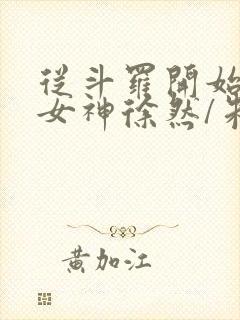 從斗羅開始
女神徐然/朱
黃加江